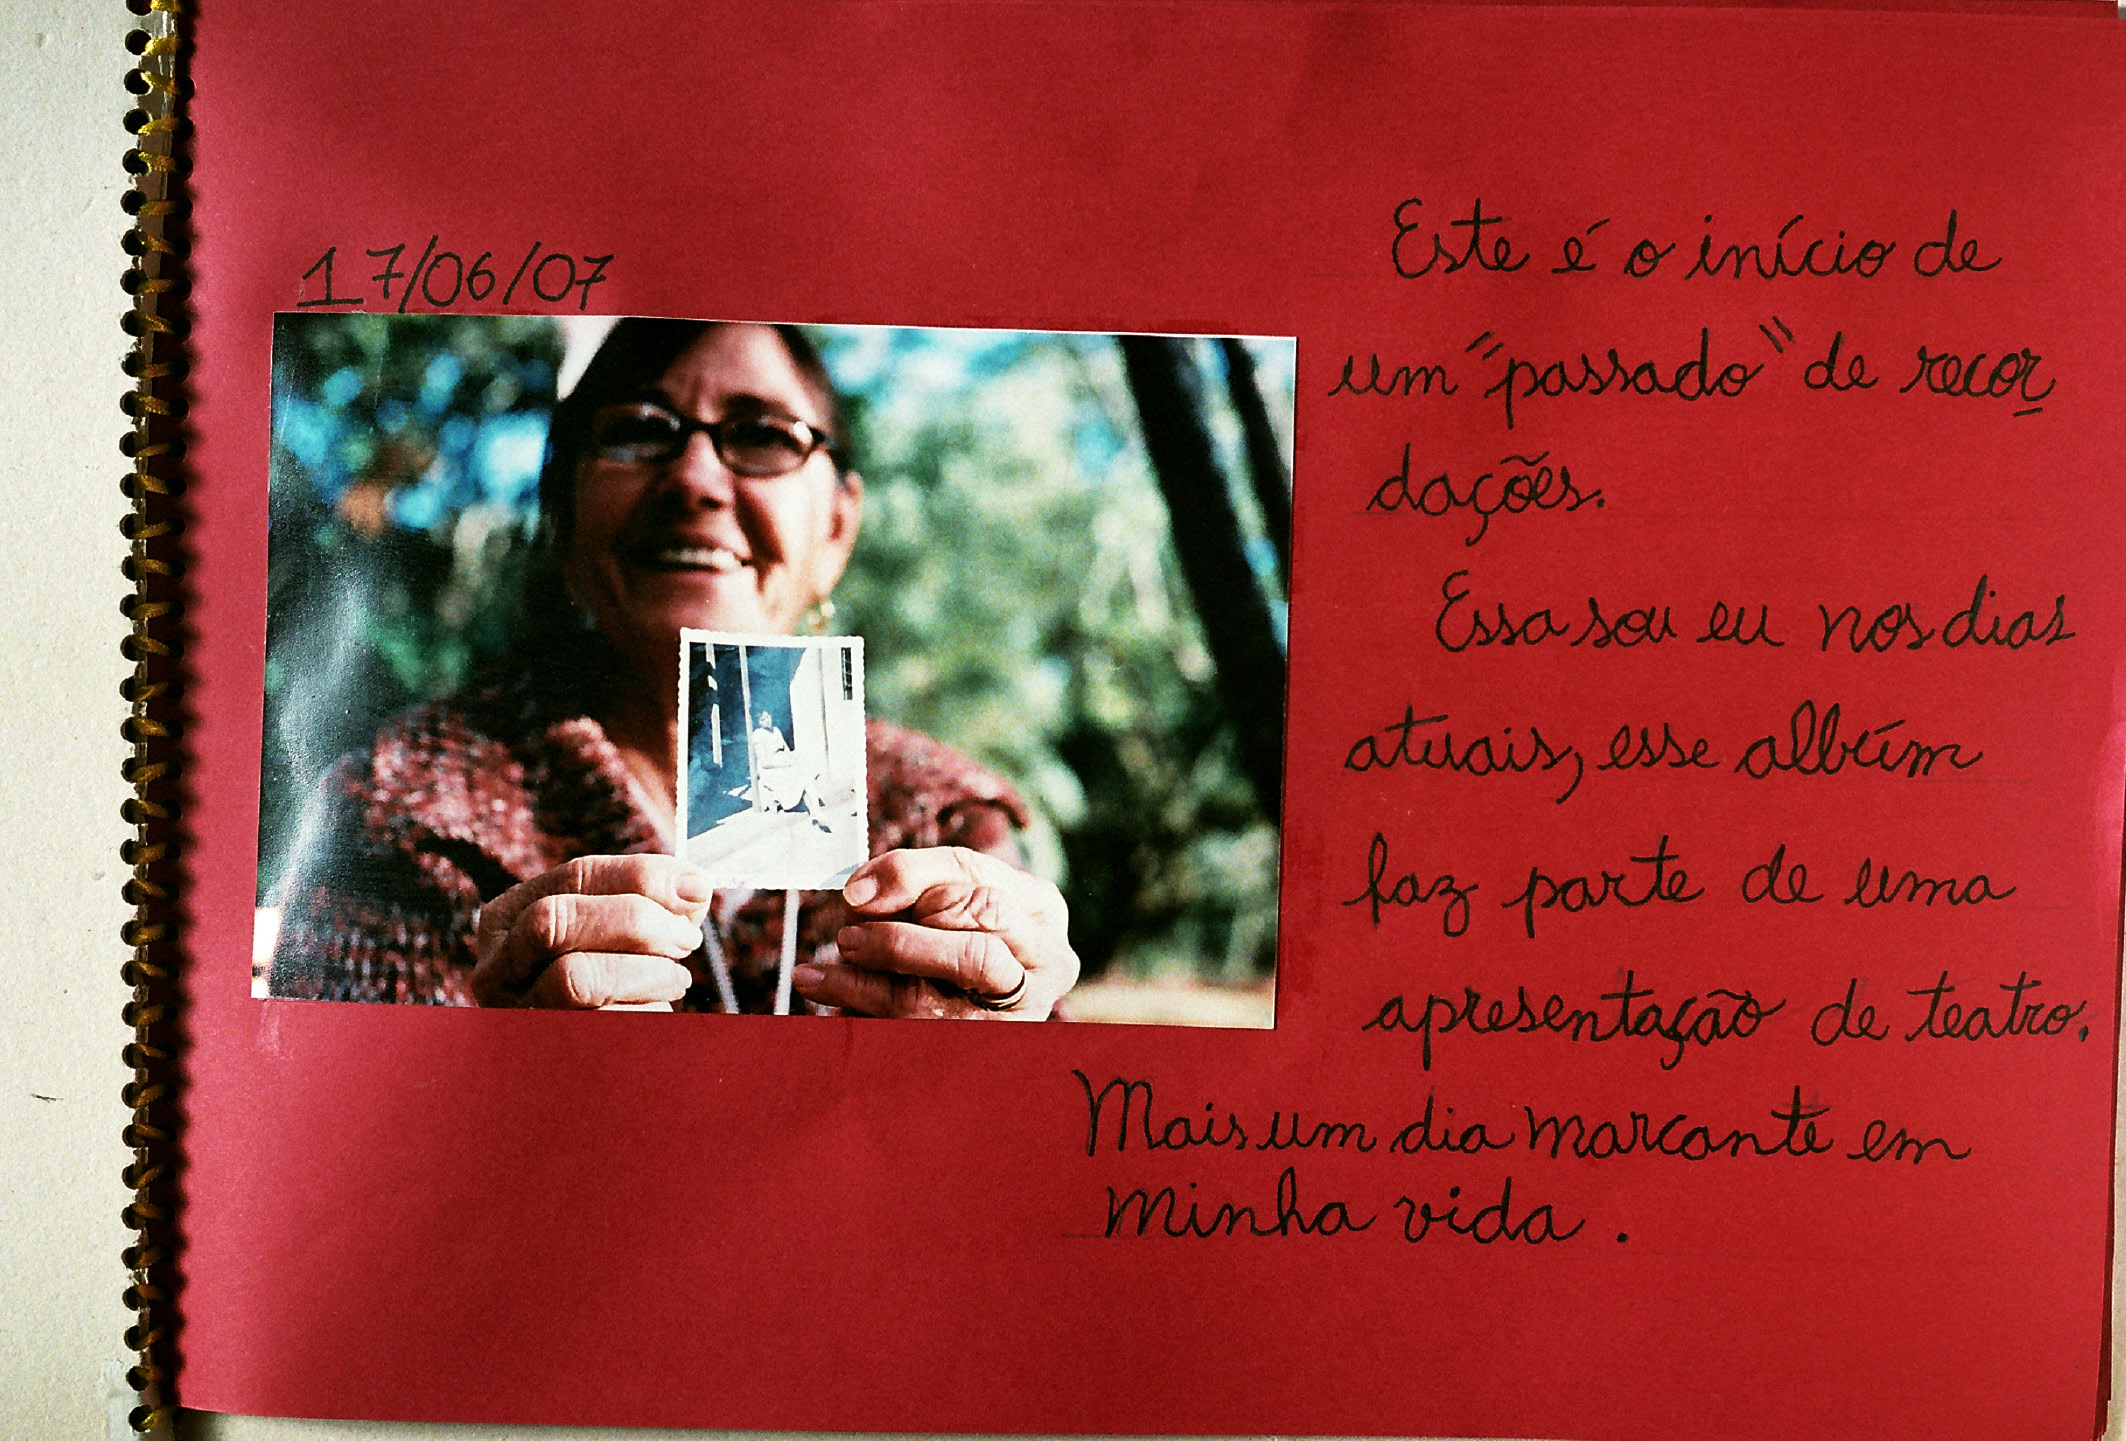 17/06/07
Este é o início de
um "passado" de recor
dações.
Essa sou eu nos dias
atuais, esse albúm
faz parte de uma
apresentação de teatro.
Mais um dia marcante em
minha vida.